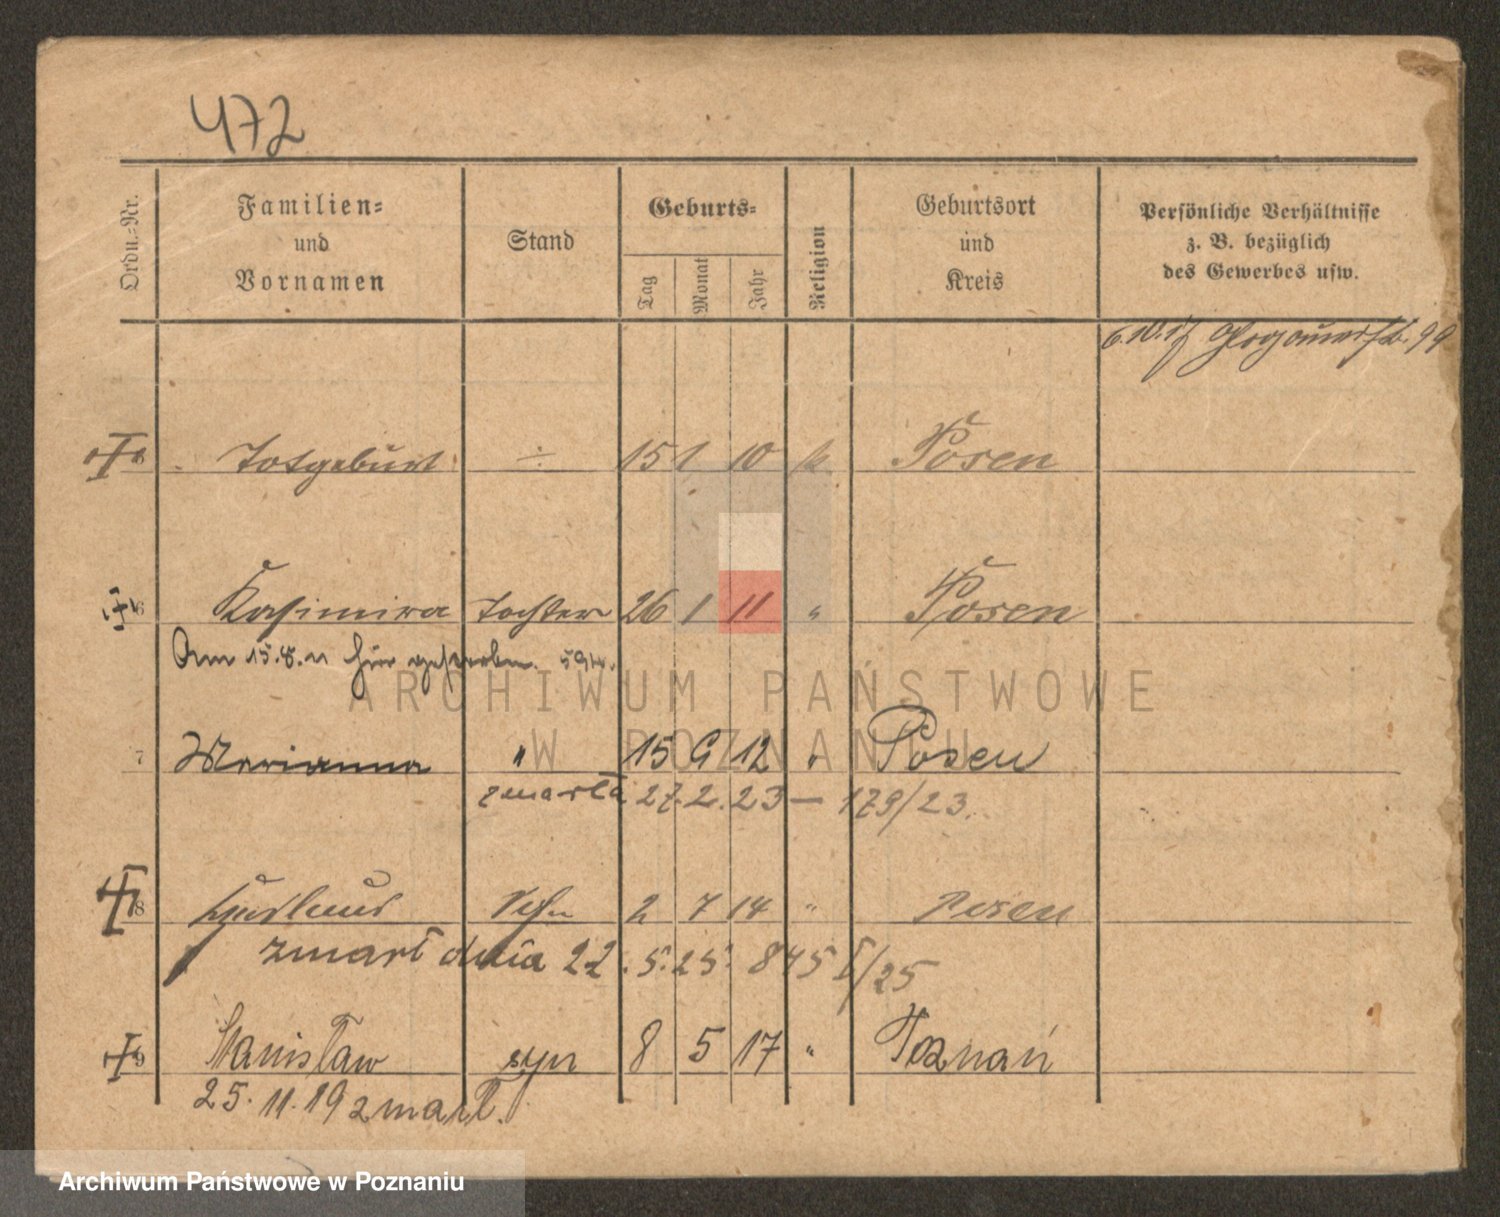 472
Ordn.=Nr.
Familien=
und
Vornamen
Stand
Geburts=
Tag
Monat
Jahr
Religion
Geburtsort
und
Kreis
Persönliche Verhältnisse
z. B. bezüglich
des Gewerbes usw.
6.10.17 Glogauerstr. 99
Totgeburt ÷ 15 1 10 k Posen
6 Kasimira Tochter 26 1 11 " Posen
Am 15.8.11 hier gestorben.
7 Marianna " 15 9 12 " Posen
zmarła 27.2.23 — 179/23.
8 Sohn 2 7 14 " Posen
zmarł dnia 22.5.25. 845 I/25
9 Stanisław syn 8 5 17 " Poznań
25.11.19 zmarł.
ARCHIWUM PAŃSTWOWE
W POZNANIU
Archiwum Państwowe w Poznaniu